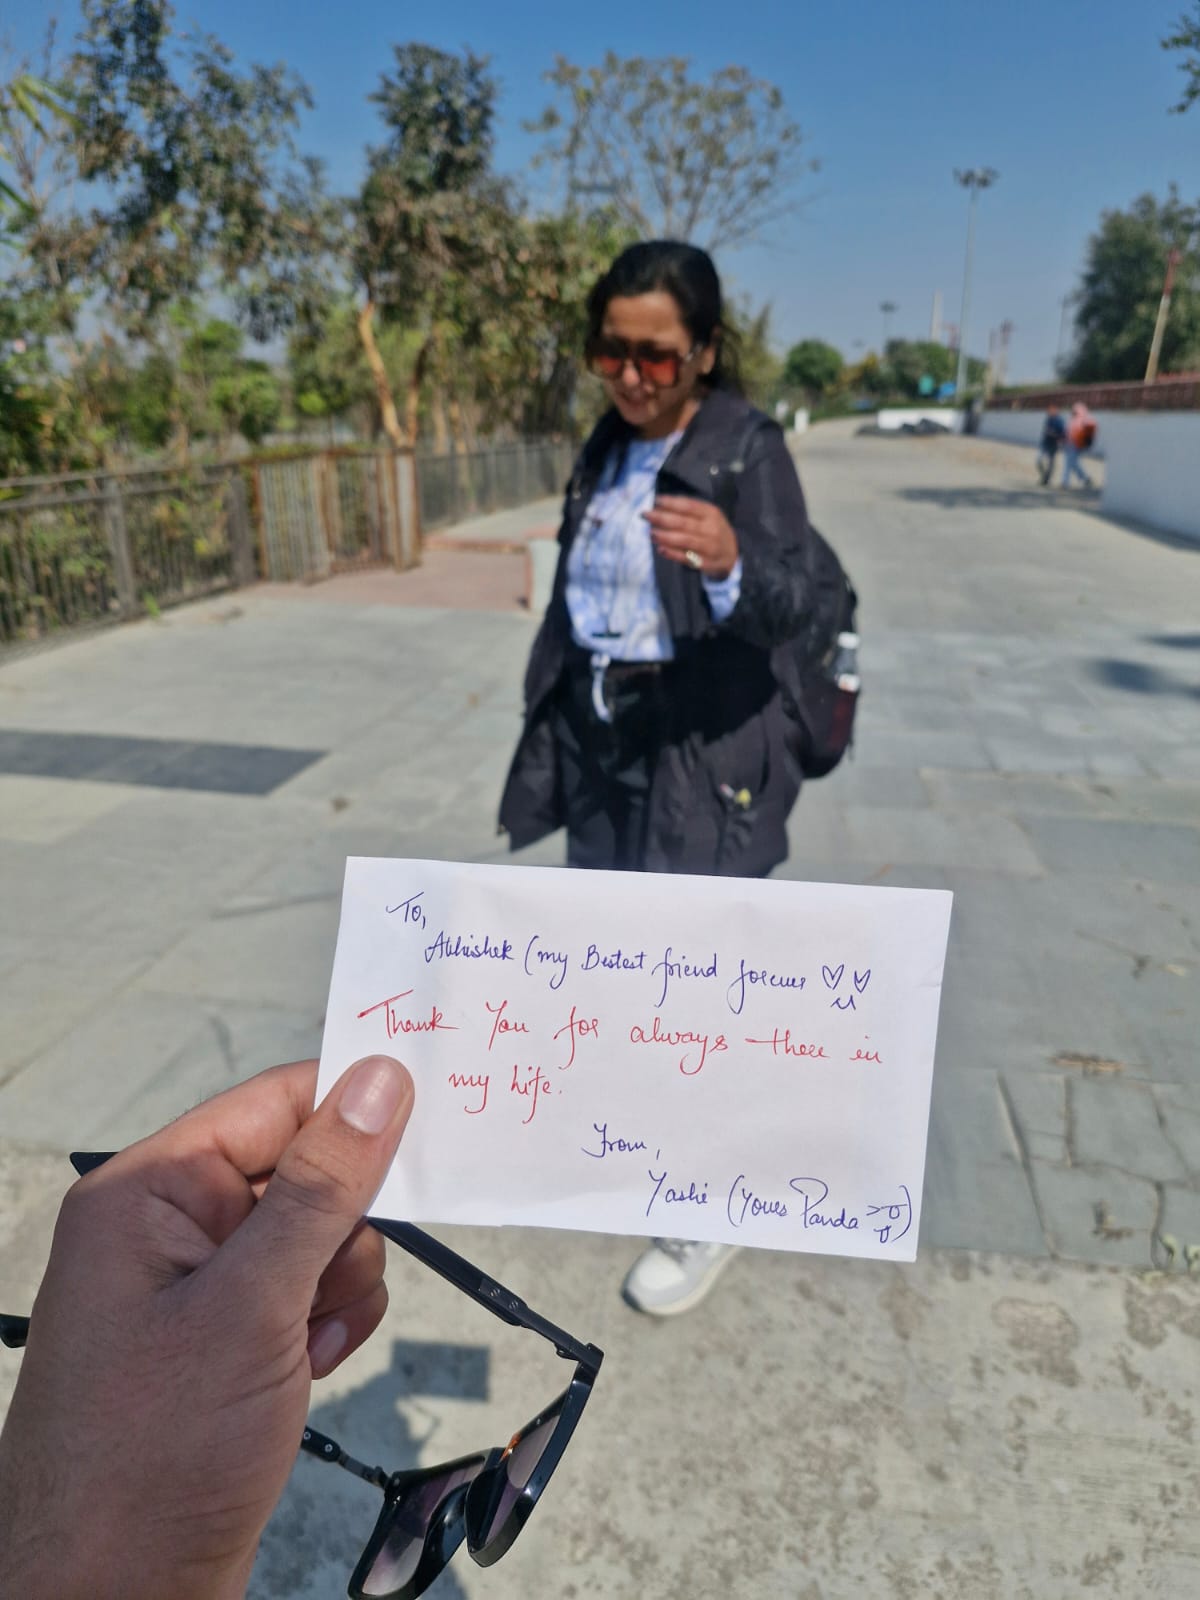 To,
Abhishek (my Bestest friend forever ♡♡
Thank You for always there in
my life.
From,
Yashi (Yours Panda >